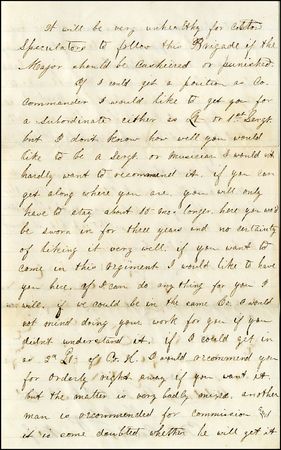 It will be very unhealthy for cotton
Speculators to follow this Brigade if the
Major should be Cashiered or punished.
If I could get a position as Co.
Commander I would like to get you for
a subordinate either as Lt or 1st Sergt.
but I dont know how well you would
like to be a Sergt. or musician I would not
hardly want to recommend it. if you can
get along where you are. you will only
have to stay about 10 mos longer, here you wo'd
be sworn in for three years and no certainty
of liking it very well. if you want to
come in this regiment I would like to have
you here, if I can do any thing for you I
will, if we could be in the same Co. I would
not mend doing your work for you if you
didnt understand it. if I could get in
as 2n Lt. of Co. H. I would recommend you
for Orderly right away if you want it.
but the matter is very badly mixed. another
man is recommended for commission but
it is some doubted whether he will get it